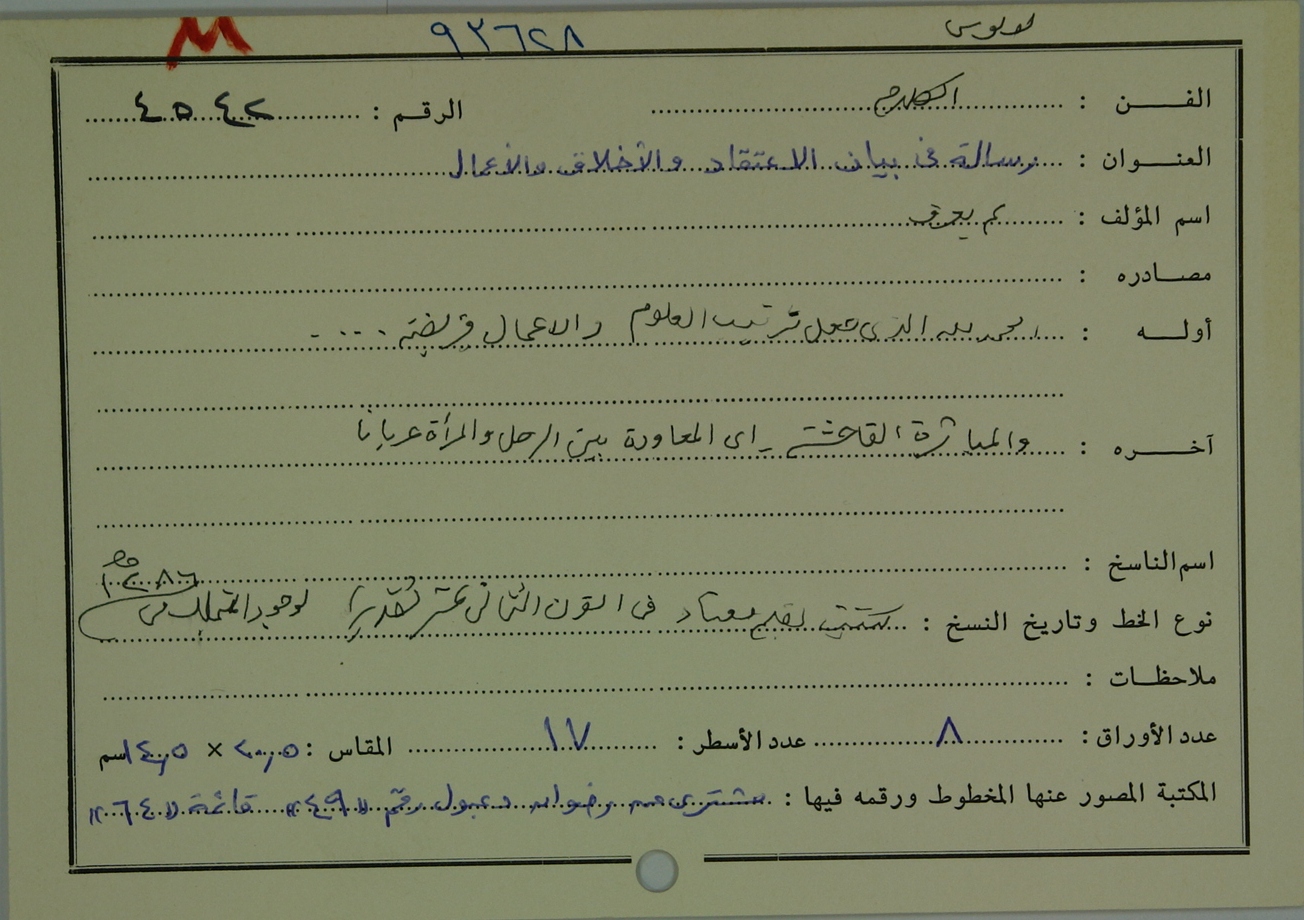 M ٩٢٦٢٨
الفن : الكلام الرقم : ٤٥٤٢
العنوان : رسالة في بيان الاعتقاد والأخلاق والأعمال
اسم المؤلف : لم يعرف
مصادره :
أوله : الحمد لله الذي جعل ترتيب العلوم والاعمال فريضة ....
آخره : والمباشرة الفاحشة اى المعاودة بين الرجل والمرأة عريانا
اسم الناسخ :
نوع الخط وتاريخ النسخ : كتبت بقلم معتاد فى القرن الثانى عشر تقديرا لوجود التملك فى ١٢٨٦ هـ
ملاحظات :
عدد الأوراق : ٨ عدد الأسطر : ١٧ المقاس : ٢٠,٥ × ١٤,٥ سم
المكتبة المصور عنها المخطوط ورقمه فيها : مشترى من رضوان دعبول رقم "٤٩" قائمة "٦٤"